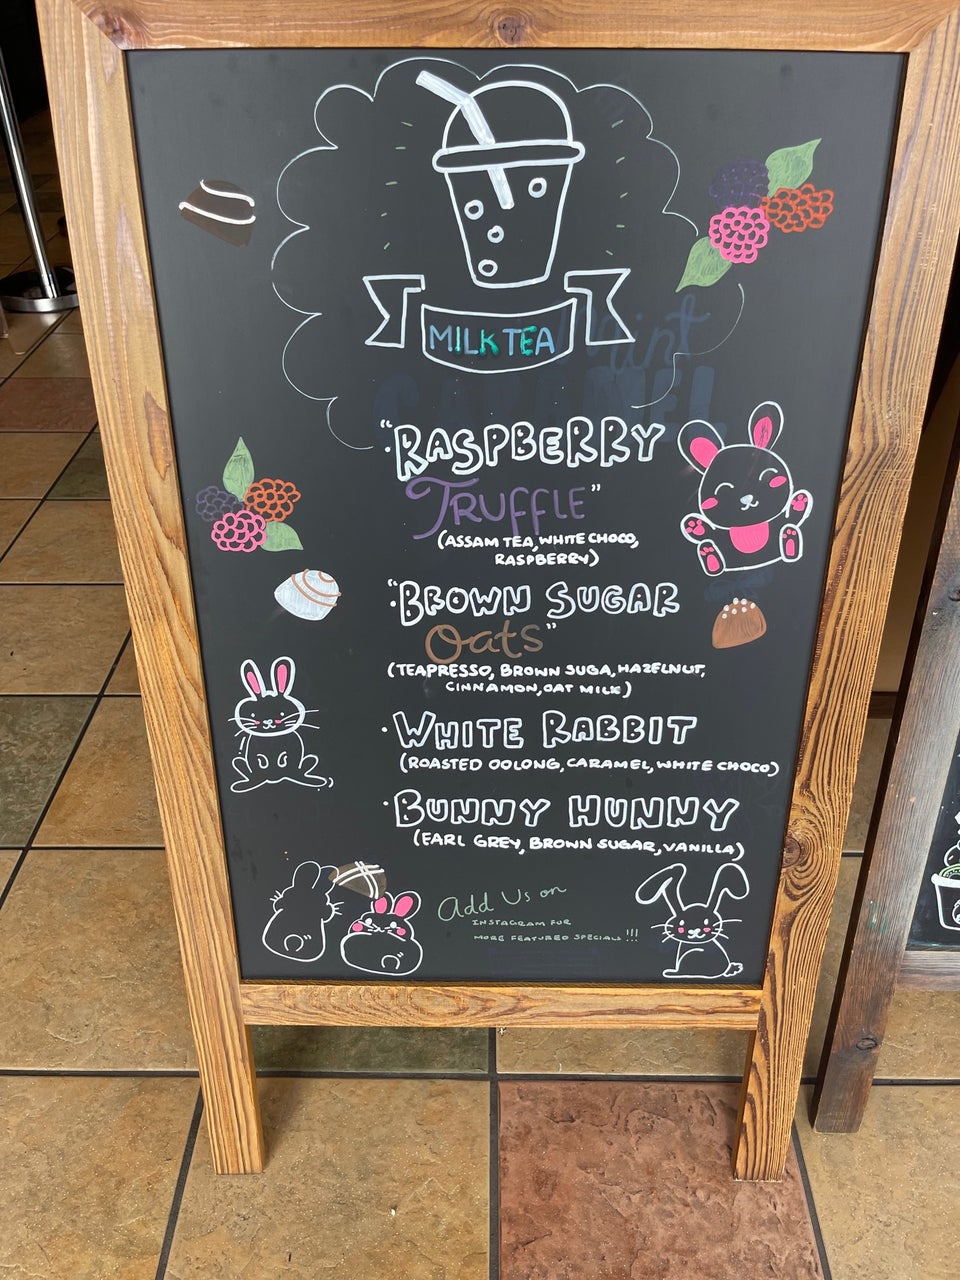 MILK TEA
Mint
CARAMEL
"RASPBERRY
TRUFFLE"
(ASSAM TEA, WHITE CHOCO,
RASPBERRY)
"BROWN SUGAR
Oats"
(TEAPRESSO, BROWN SUGA, HAZELNUT,
CINNAMON, OAT MILK)
·WHITE RABBIT
(ROASTED OOLONG, CARAMEL, WHITE CHOCO)
·BUNNY HUNNY
(EARL GREY, BROWN SUGAR, VANILLA)
Add Us on
INSTAGRAM FOR
MORE FEATURED SPECIALS!!!